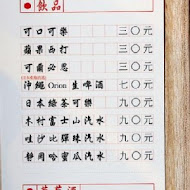 飲品
可口可樂 三〇元
蘋果西打 三〇元
可爾必思 三〇元
沖繩 Orion 生啤酒 七〇元
日本綠茶可樂 九〇元
木村富士山汽水 九〇元
哇沙比彈珠汽水 九〇元
靜岡哈蜜瓜汽水 九〇元